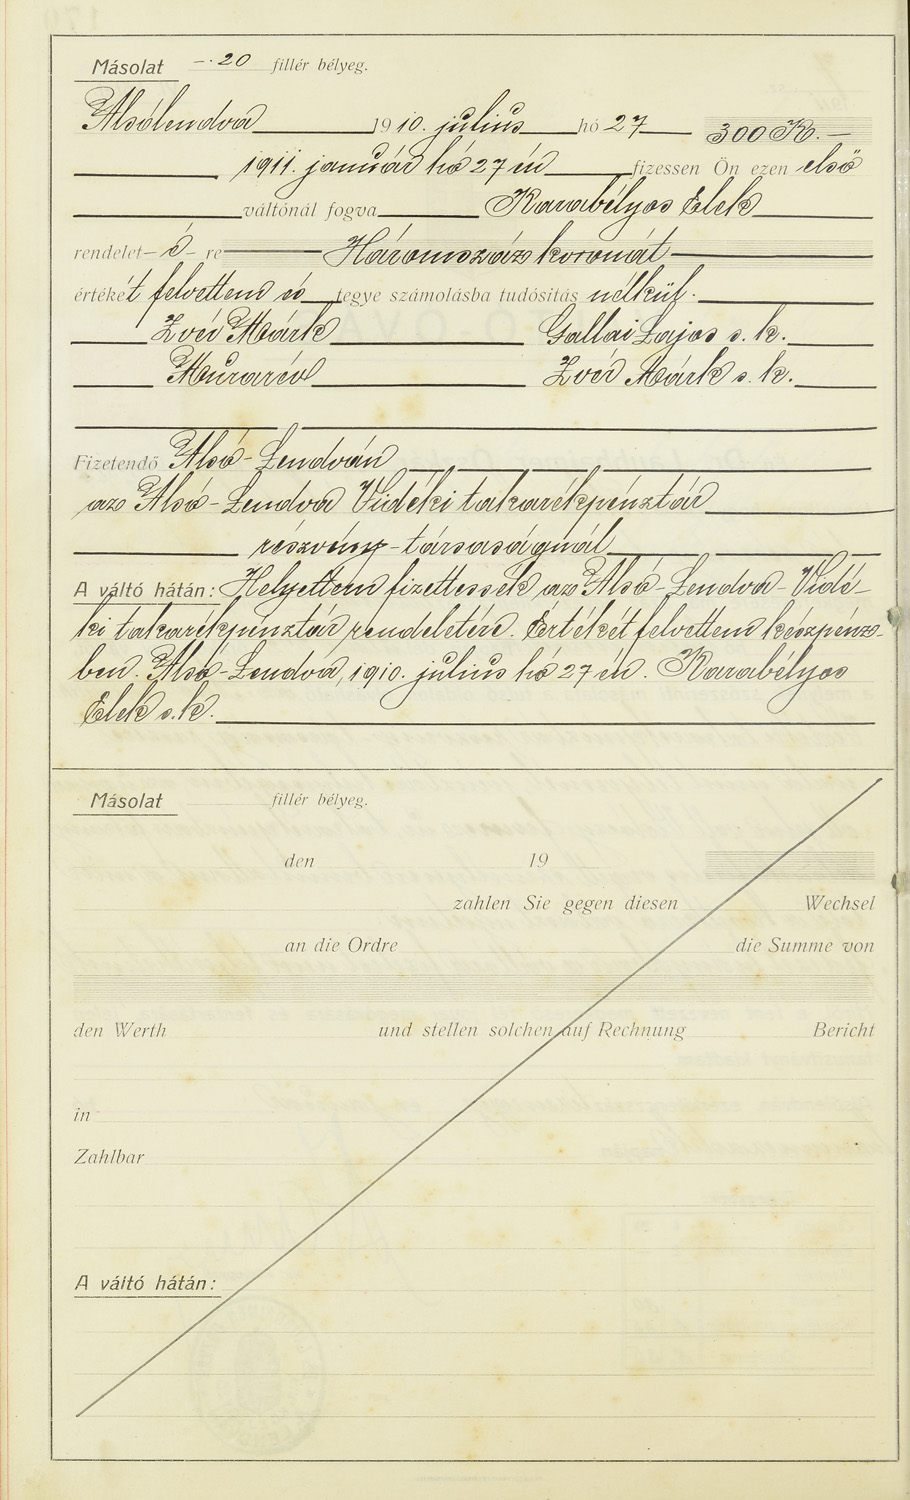 Másolat —.20 fillér bélyeg.
Alsólendva 1910. július hó 27 300 K.—
1911. január hó 27 én fizessen Ön ezen első
váltónál fogva Karabélyos Elek
rendelet- é - re Háromszáz koronát
értékét felvettem és tegye számolásba tudósítás nélkül.
Zvér Márk Gallai Lajos s. k.
Murarév Zvér Márk s. k.
Fizetendő Alsó-Lendván
az Alsó-Lendva Vidéki takarékpénztár
részvény-társaságnál
A váltó hátán: Helyettem fizettessék az Alsó-Lendva-Vidé-
ki takarékpénztár rendeletére. Értékét felvettem készpénz-
ben. Alsó-Lendva, 1910. július hó 27 én. Karabélyos
Elek s. k.
Másolat fillér bélyeg.
den 19
zahlen Sie gegen diesen Wechsel
an die Ordre die Summe von
den Werth und stellen solchen auf Rechnung Bericht
in
Zahlbar
A váltó hátán: